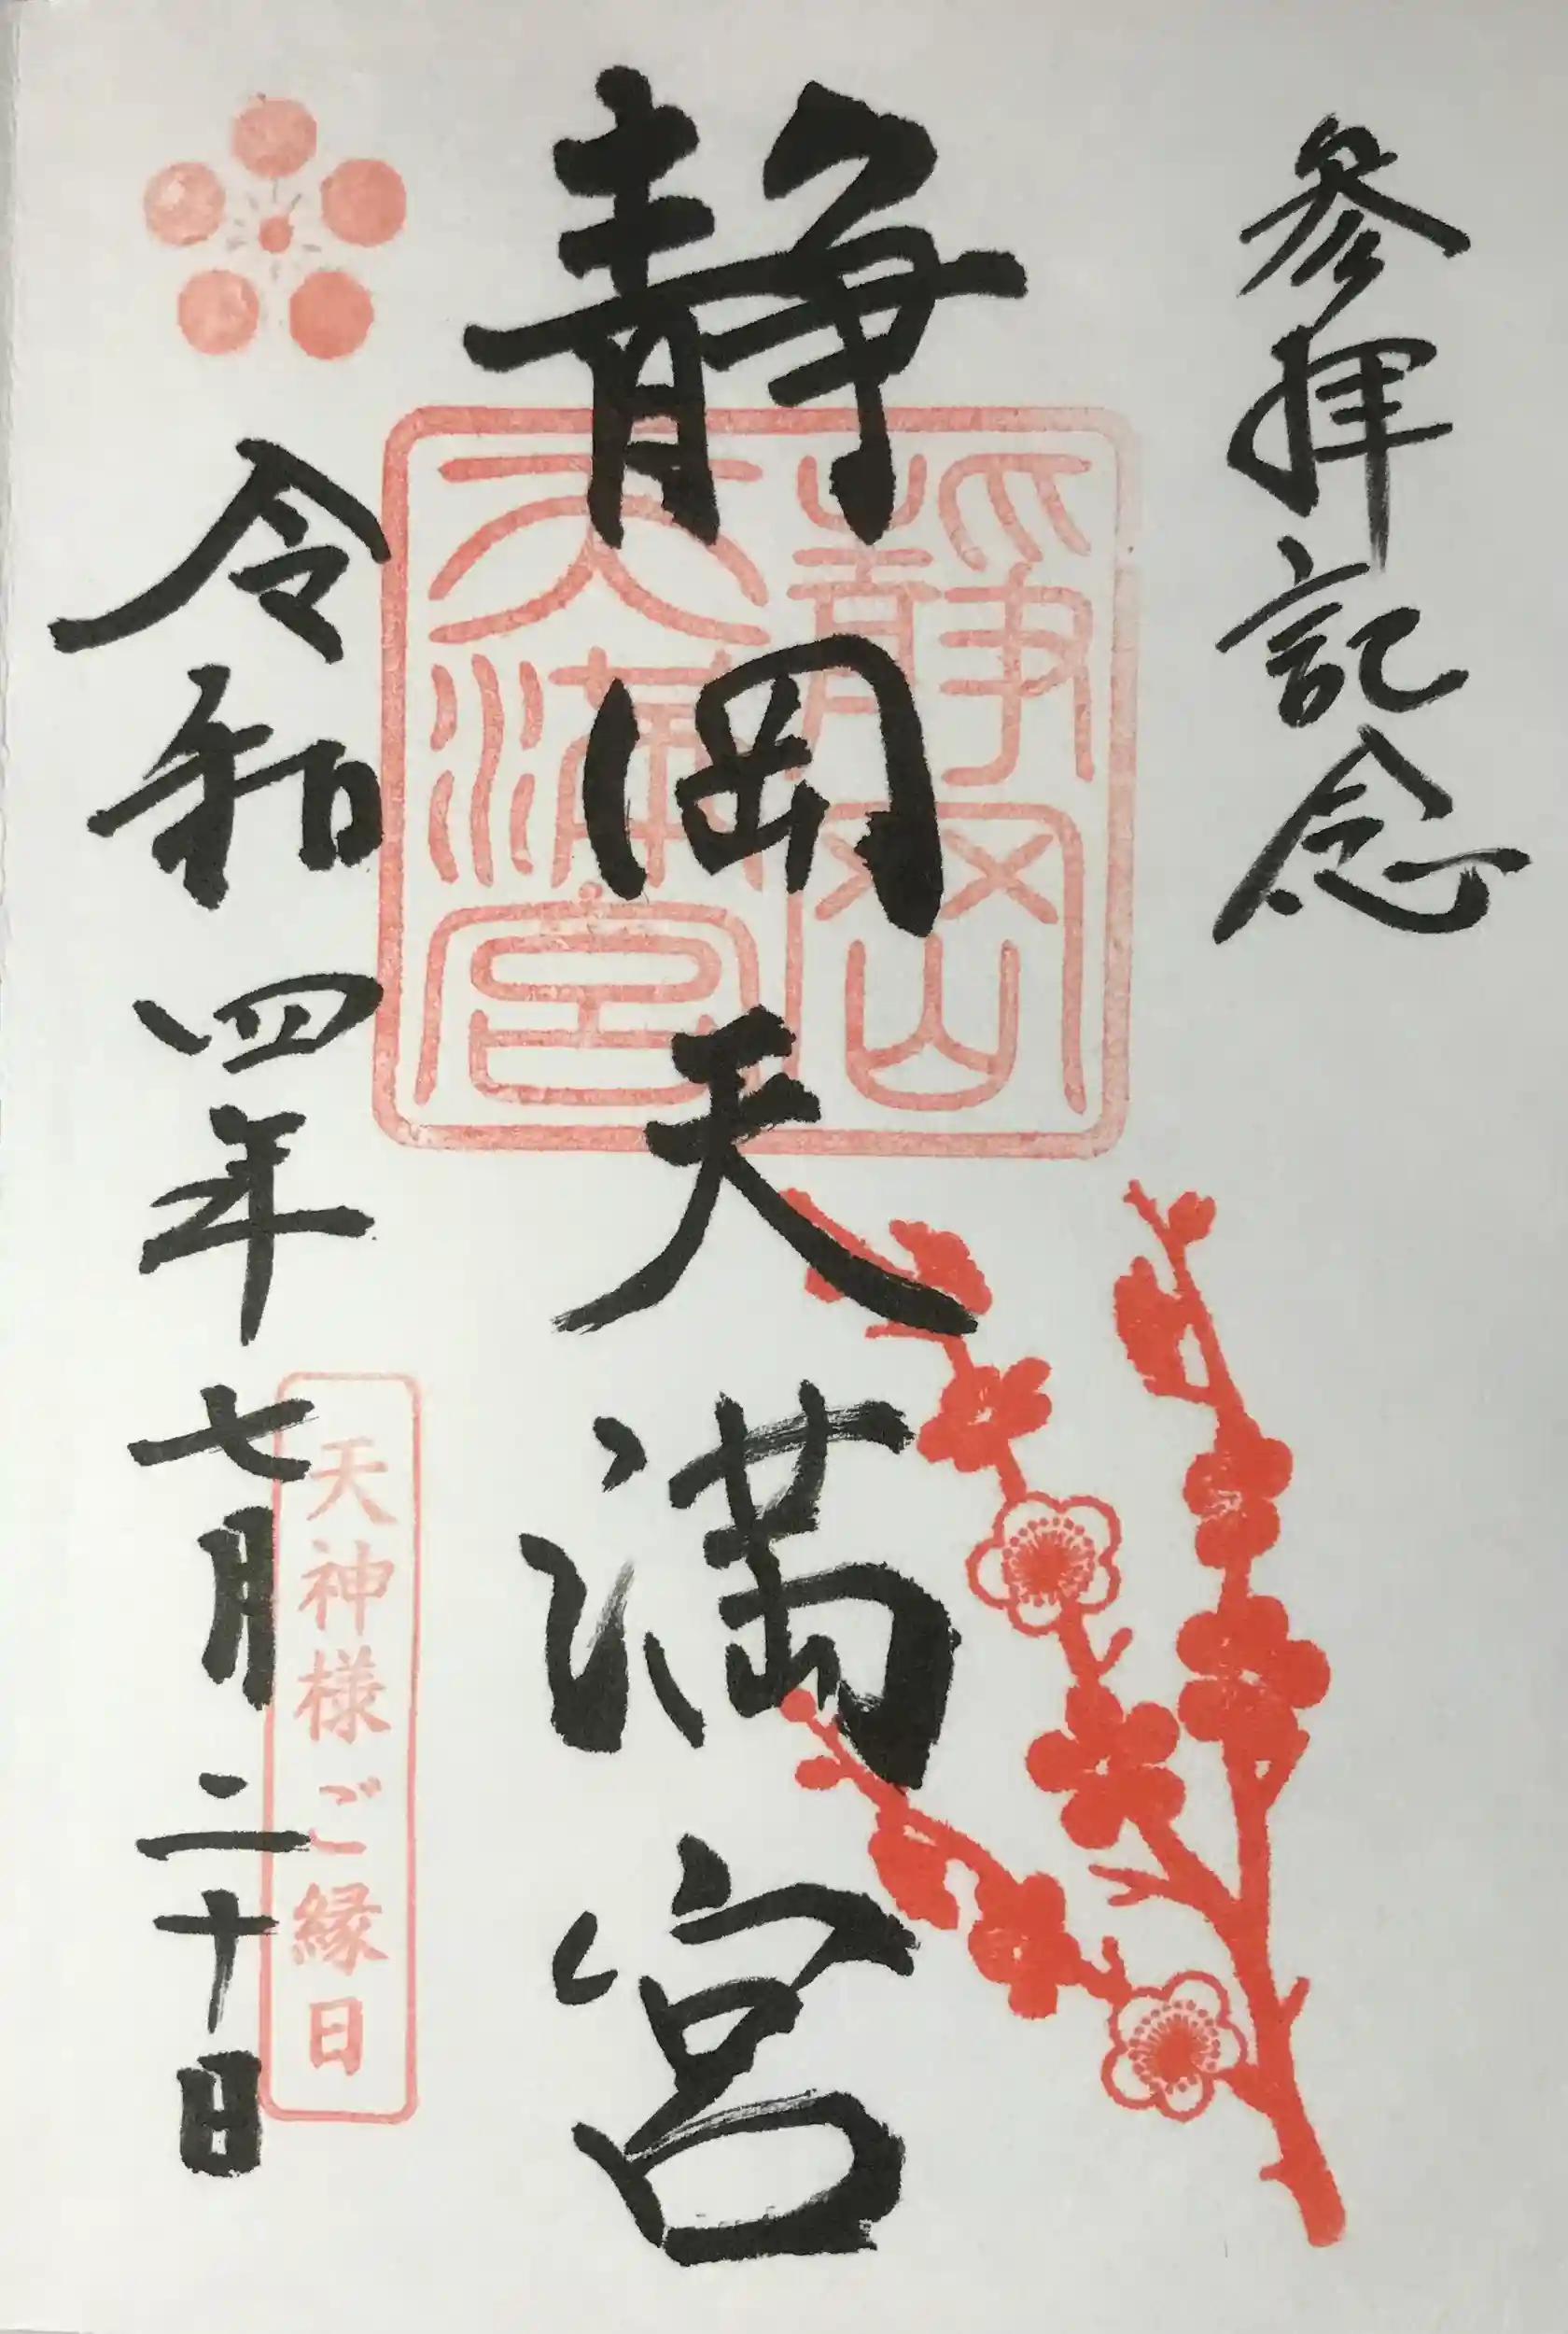 参拝記念
静岡天満宮
靜岡
天満宮
天神様ご縁日
令和四年七月二十日